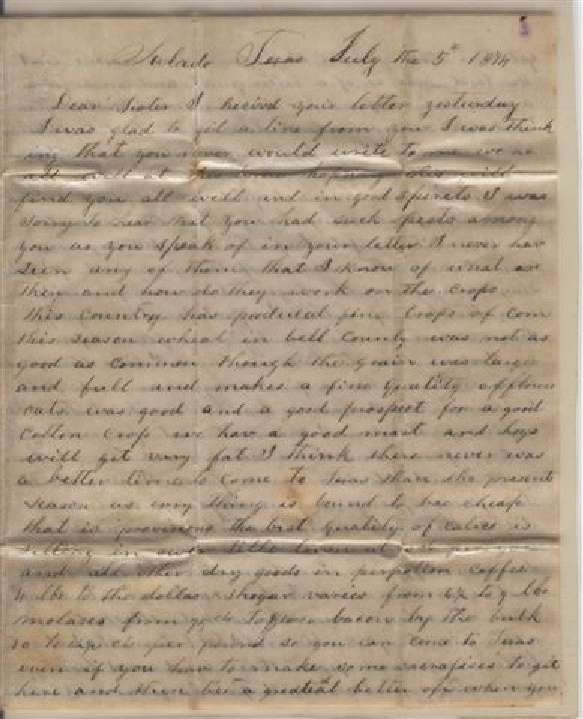 Salado Texas July the 5th 187
Dear Sister I recived your letter yesturday
I was glad to git a line from you I was think
ing that you never would write to me we ar
all well at hopeing this will
find you all well and in good spirets I was
sorry to hear that you had such pests among
you as you speak of in your letter I never hav
seen any of them that I know of what ar
they and how do they work on the crops
this country has produced fine crops of corn
this season wheat in bell county was not as
good as common though the grain was large
and full and makes a fine quality of flour
oats was good and a good prospect for a good
cotton crop we hav a good mast and hogs
will get very fat I think there never was
a better time to come to Texas than the present
season as evry thing is bound to bee cheap
that is provisions the best quality of calico is
selling in our little town at
and all other dry goods in purpotion coffee
4 lbs to the dollar shugar varies from to 9 lbs
molases from to bacon by the bulk
10 to cts per pound so you can come to Texas
even if you hav to make some sacrafises to git
here and then bee a greateal better off when you